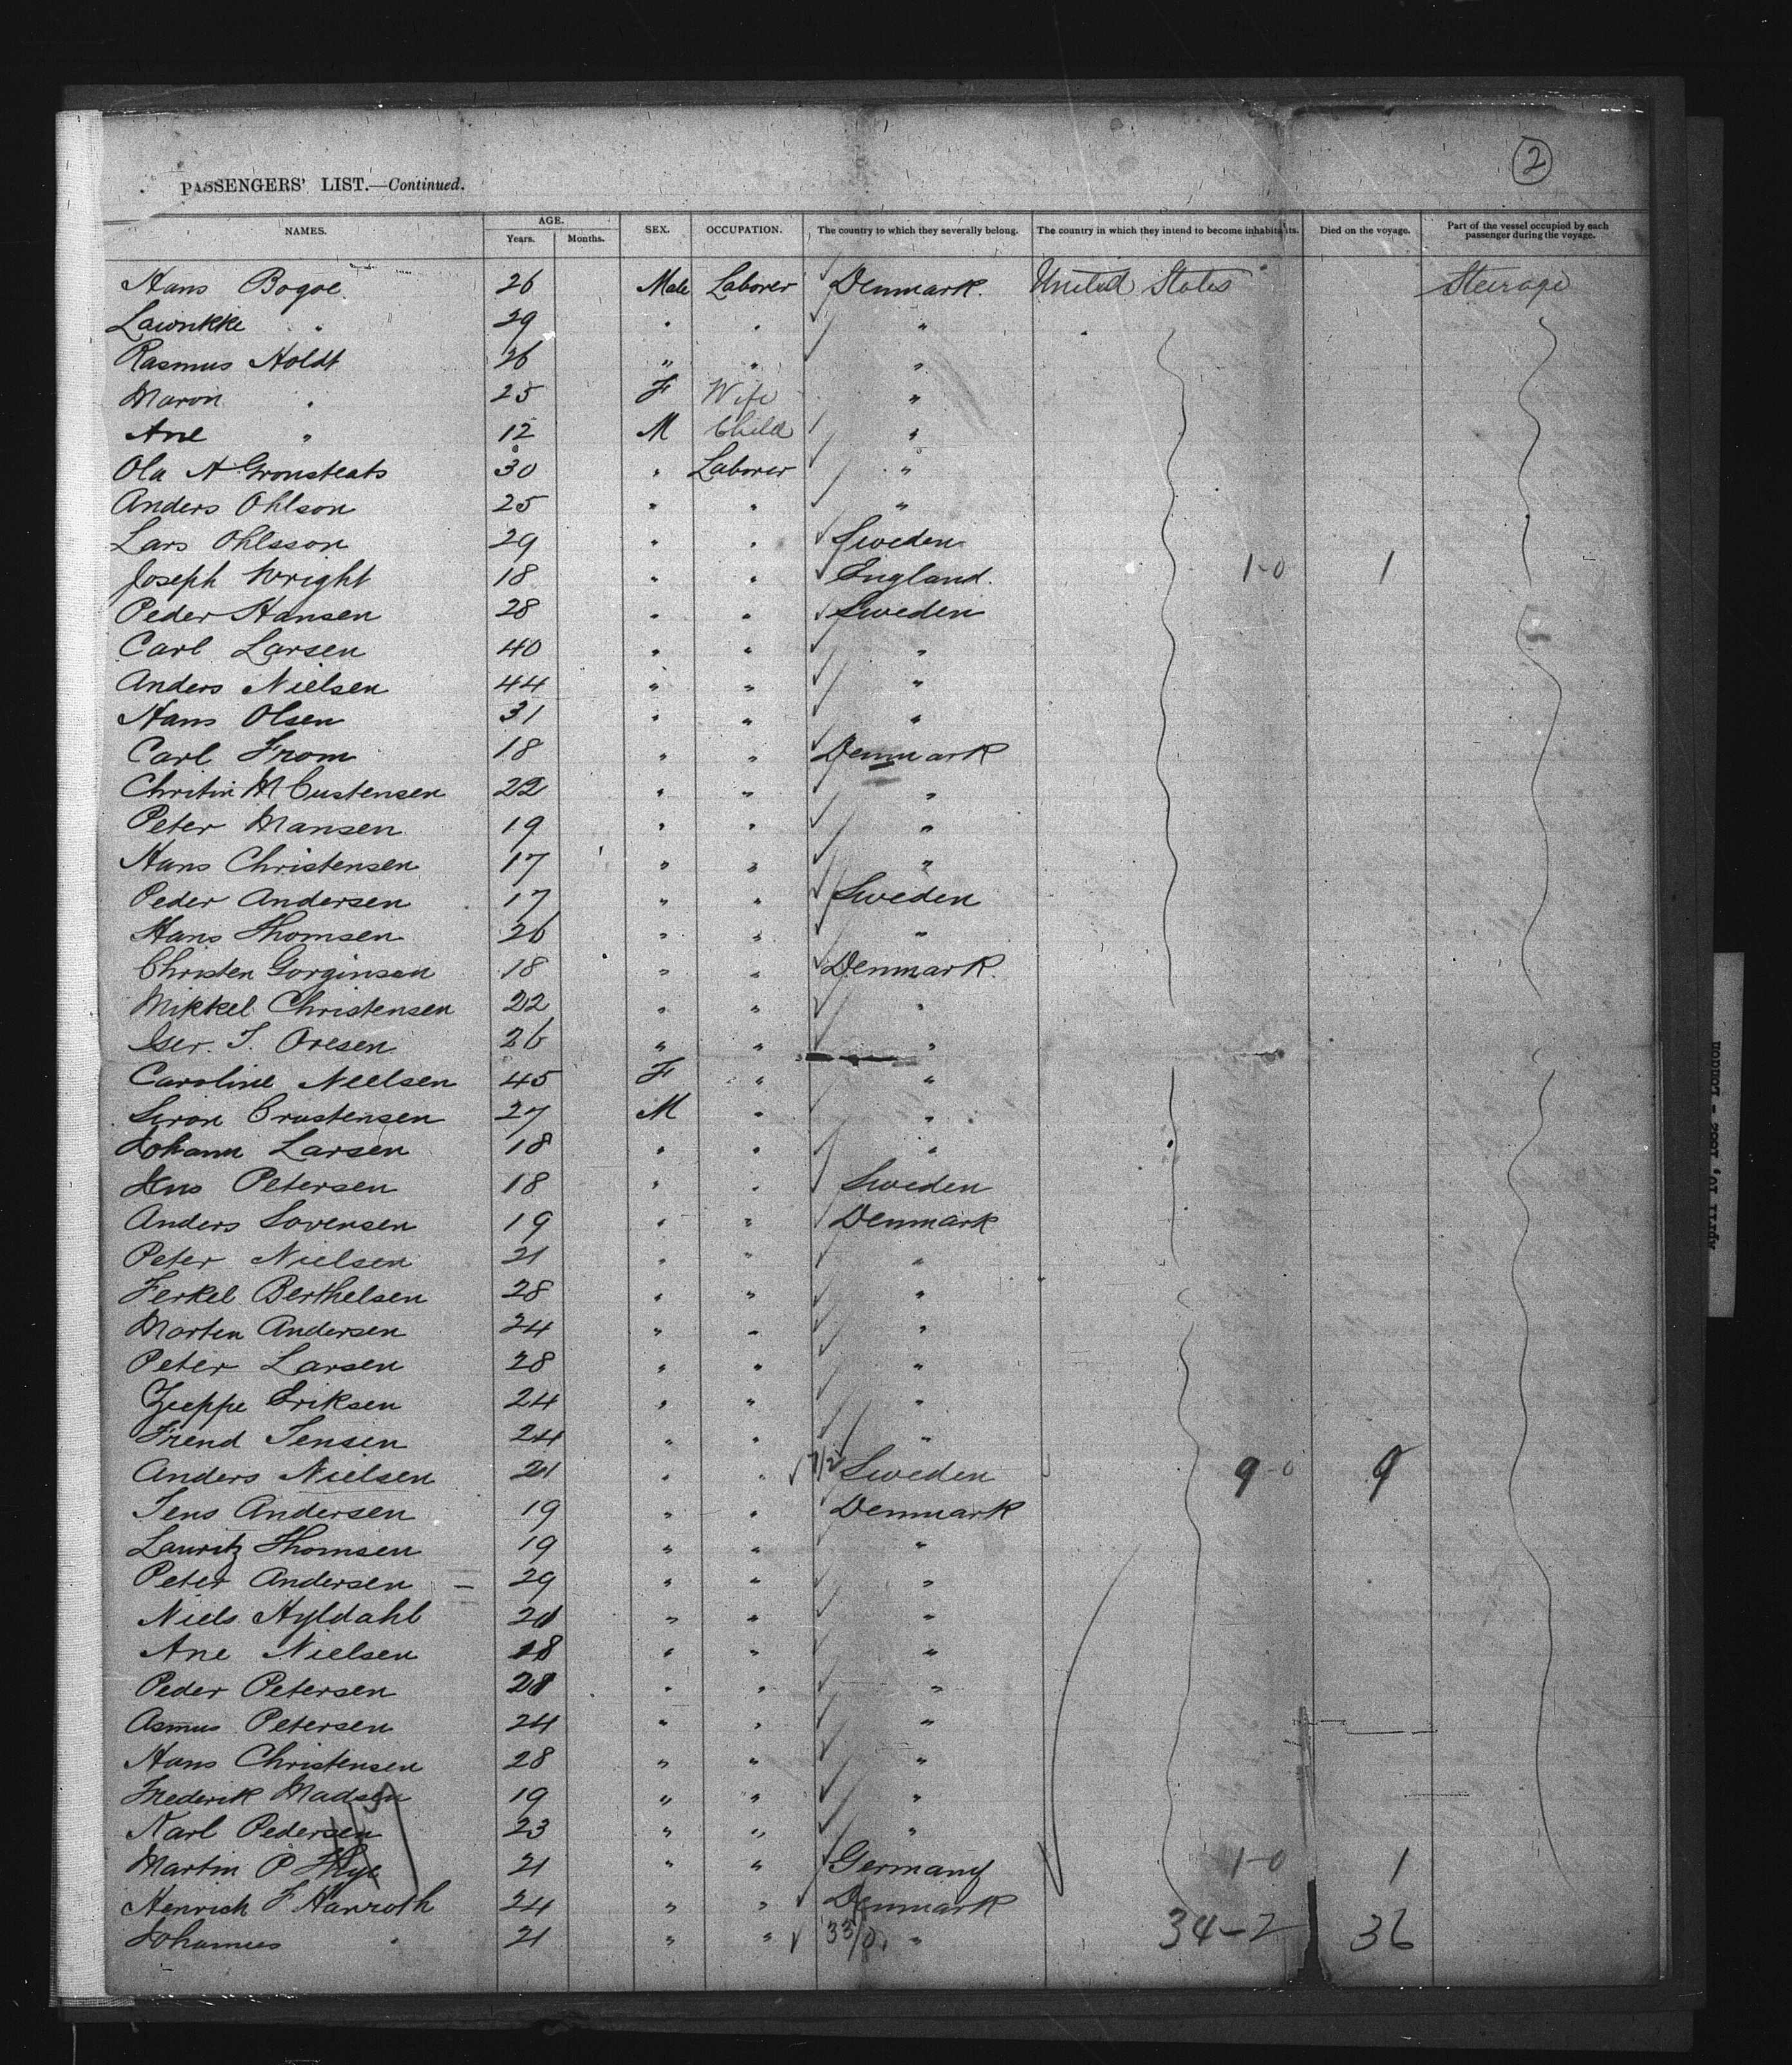 2
PASSENGERS' LIST.—Continued.
NAMES. AGE. Years. Months. SEX. OCCUPATION. The country to which they severally belong. The country in which they intend to become inhabitants. Died on the voyage. Part of the vessel occupied by each passenger during the voyage.
Hans Bogoe 26 Male Laborer Denmark. United States Steerage
29 " " "
Rasmus Holdt 26 " " "
Maron " 25 F Wife "
Ane " 12 M Child "
Ola A Gronsteats 30 " Laborer "
Anders Ohlson 25 " " "
Lars Ohlsson 29 " " Sweden
Joseph Wright 18 " " England. 1-0 1
Peder Hansen 28 " " Sweden
Carl Larsen 40 " " "
Anders Nielsen 44 " " "
Hans Olsen 31 " " "
Carl From 18 " " Denmark
Christin M Custensen 22 " " "
Peter Mansen 19 " " "
Hans Christensen 17 " " "
Peder Andersen 17 " " Sweden
Hans Thomsen 26 " " "
Christen Gorginsen 18 " " Denmark.
Mikkel Christensen 22 " " "
Iser. J. Oresen 26 " " "
Caroline Nielsen 45 F " "
Crustensen 27 M " "
Johann Larsen 18 " " "
Jens Petersen 18 " " Sweden
Anders Sorensen 19 " " Denmark
Peter Nielsen 21 " " "
Ferkel Berthelsen 28 " " "
Morten Andersen 24 " " "
Peter Larsen 28 " " "
Jeppe Eriksen 24 " " "
Frend Jensen 24 " " "
Anders Nielsen 21 " " Sweden 9-0 9
Jens Andersen 19 " " Denmark
Lauritz Thomsen 19 " " "
Peter Andersen 29 " " "
Niels Hyldahl 20 " " "
Ane Nielsen 18 " " "
Peder Petersen 28 " " "
Asmus Petersen 24 " " "
Hans Christensen 28 " " "
Frederik Madsen 19 " " "
Karl Pedersen 23 " " "
Martin P Hye 21 " " Germany 1-0 1
Henrich F Hanroth 24 " " Denmark
Johannes " 21 " " 33/0 " 34-2 36
April 10, 1882 - London